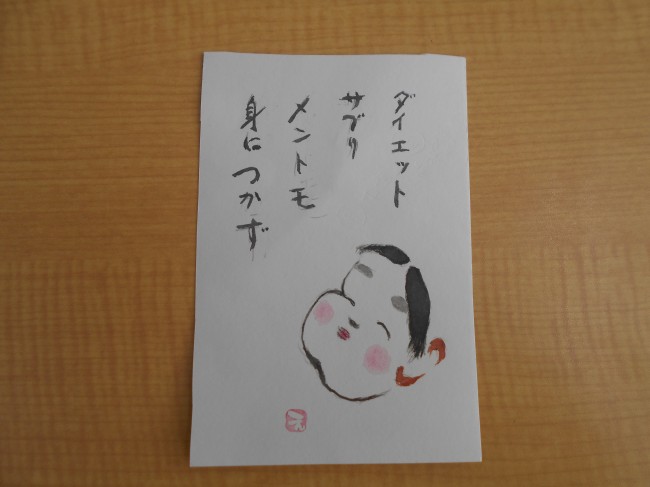 ダイエット
サプリ
メントモ
身につかず